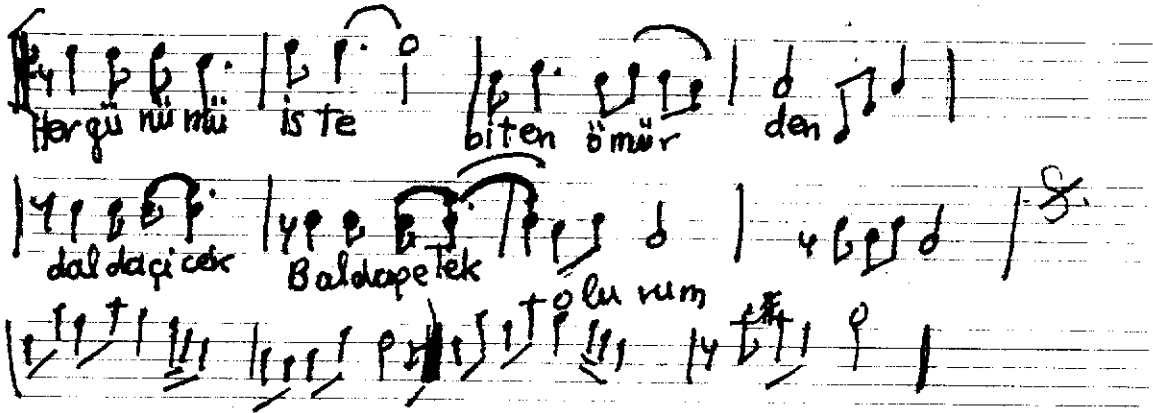 Her gü nü mü is te biten ömür den
dal da çi cek Balda petek
olu rum